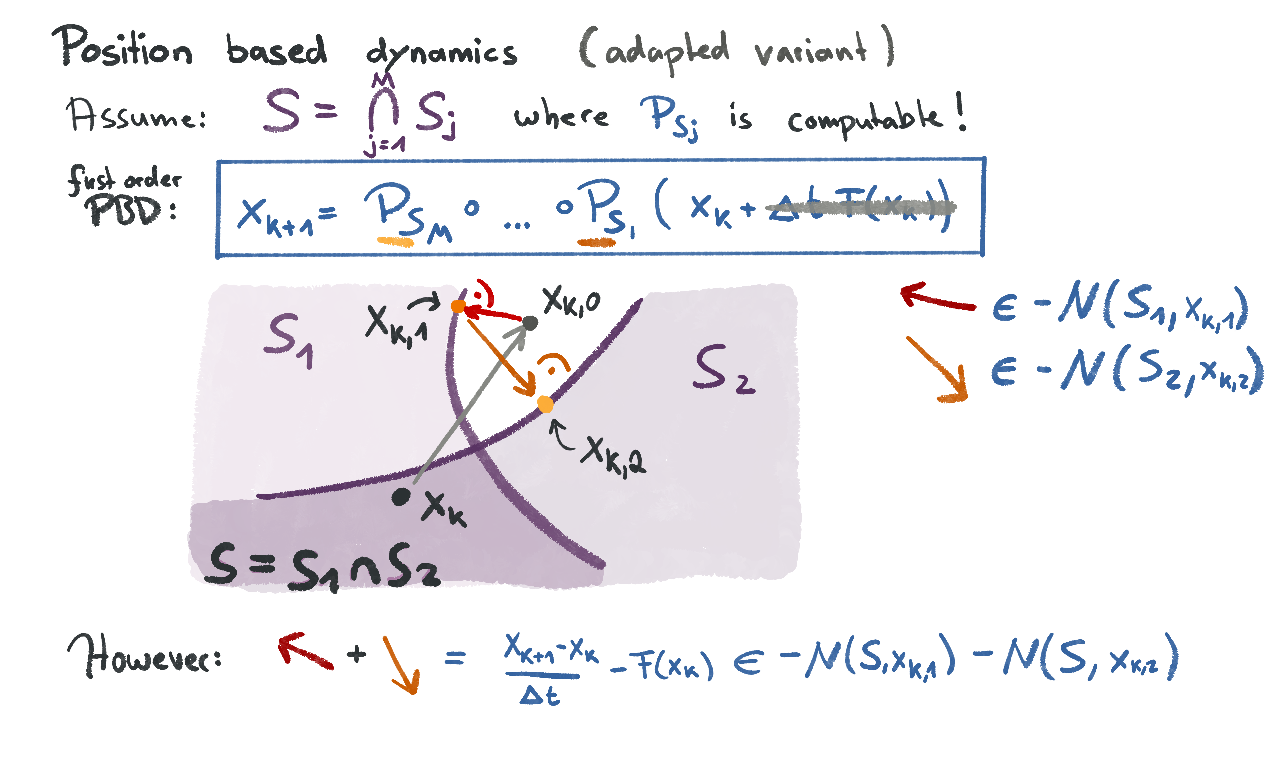 Position based dynamics (adapted variant)
Assume: S = ⋂_{j=1}^{M} S_j where P_{S_j} is computable!
first order
PBD: x_{k+1} = P_{S_M} ∘ ... ∘ P_{S_1} ( x_k + Δt F(x_k))
x_{k,1} x_{k,0}
S_1
S_2
x_{k,2}
x_k
S = S_1 ∩ S_2
∈ -N(S_1, x_{k,1})
∈ -N(S_2, x_{k,2})
However: + = \frac{x_{k+1} - x_k}{Δt} - F(x_k) ∈ -N(S, x_{k,1}) - N(S, x_{k,2})